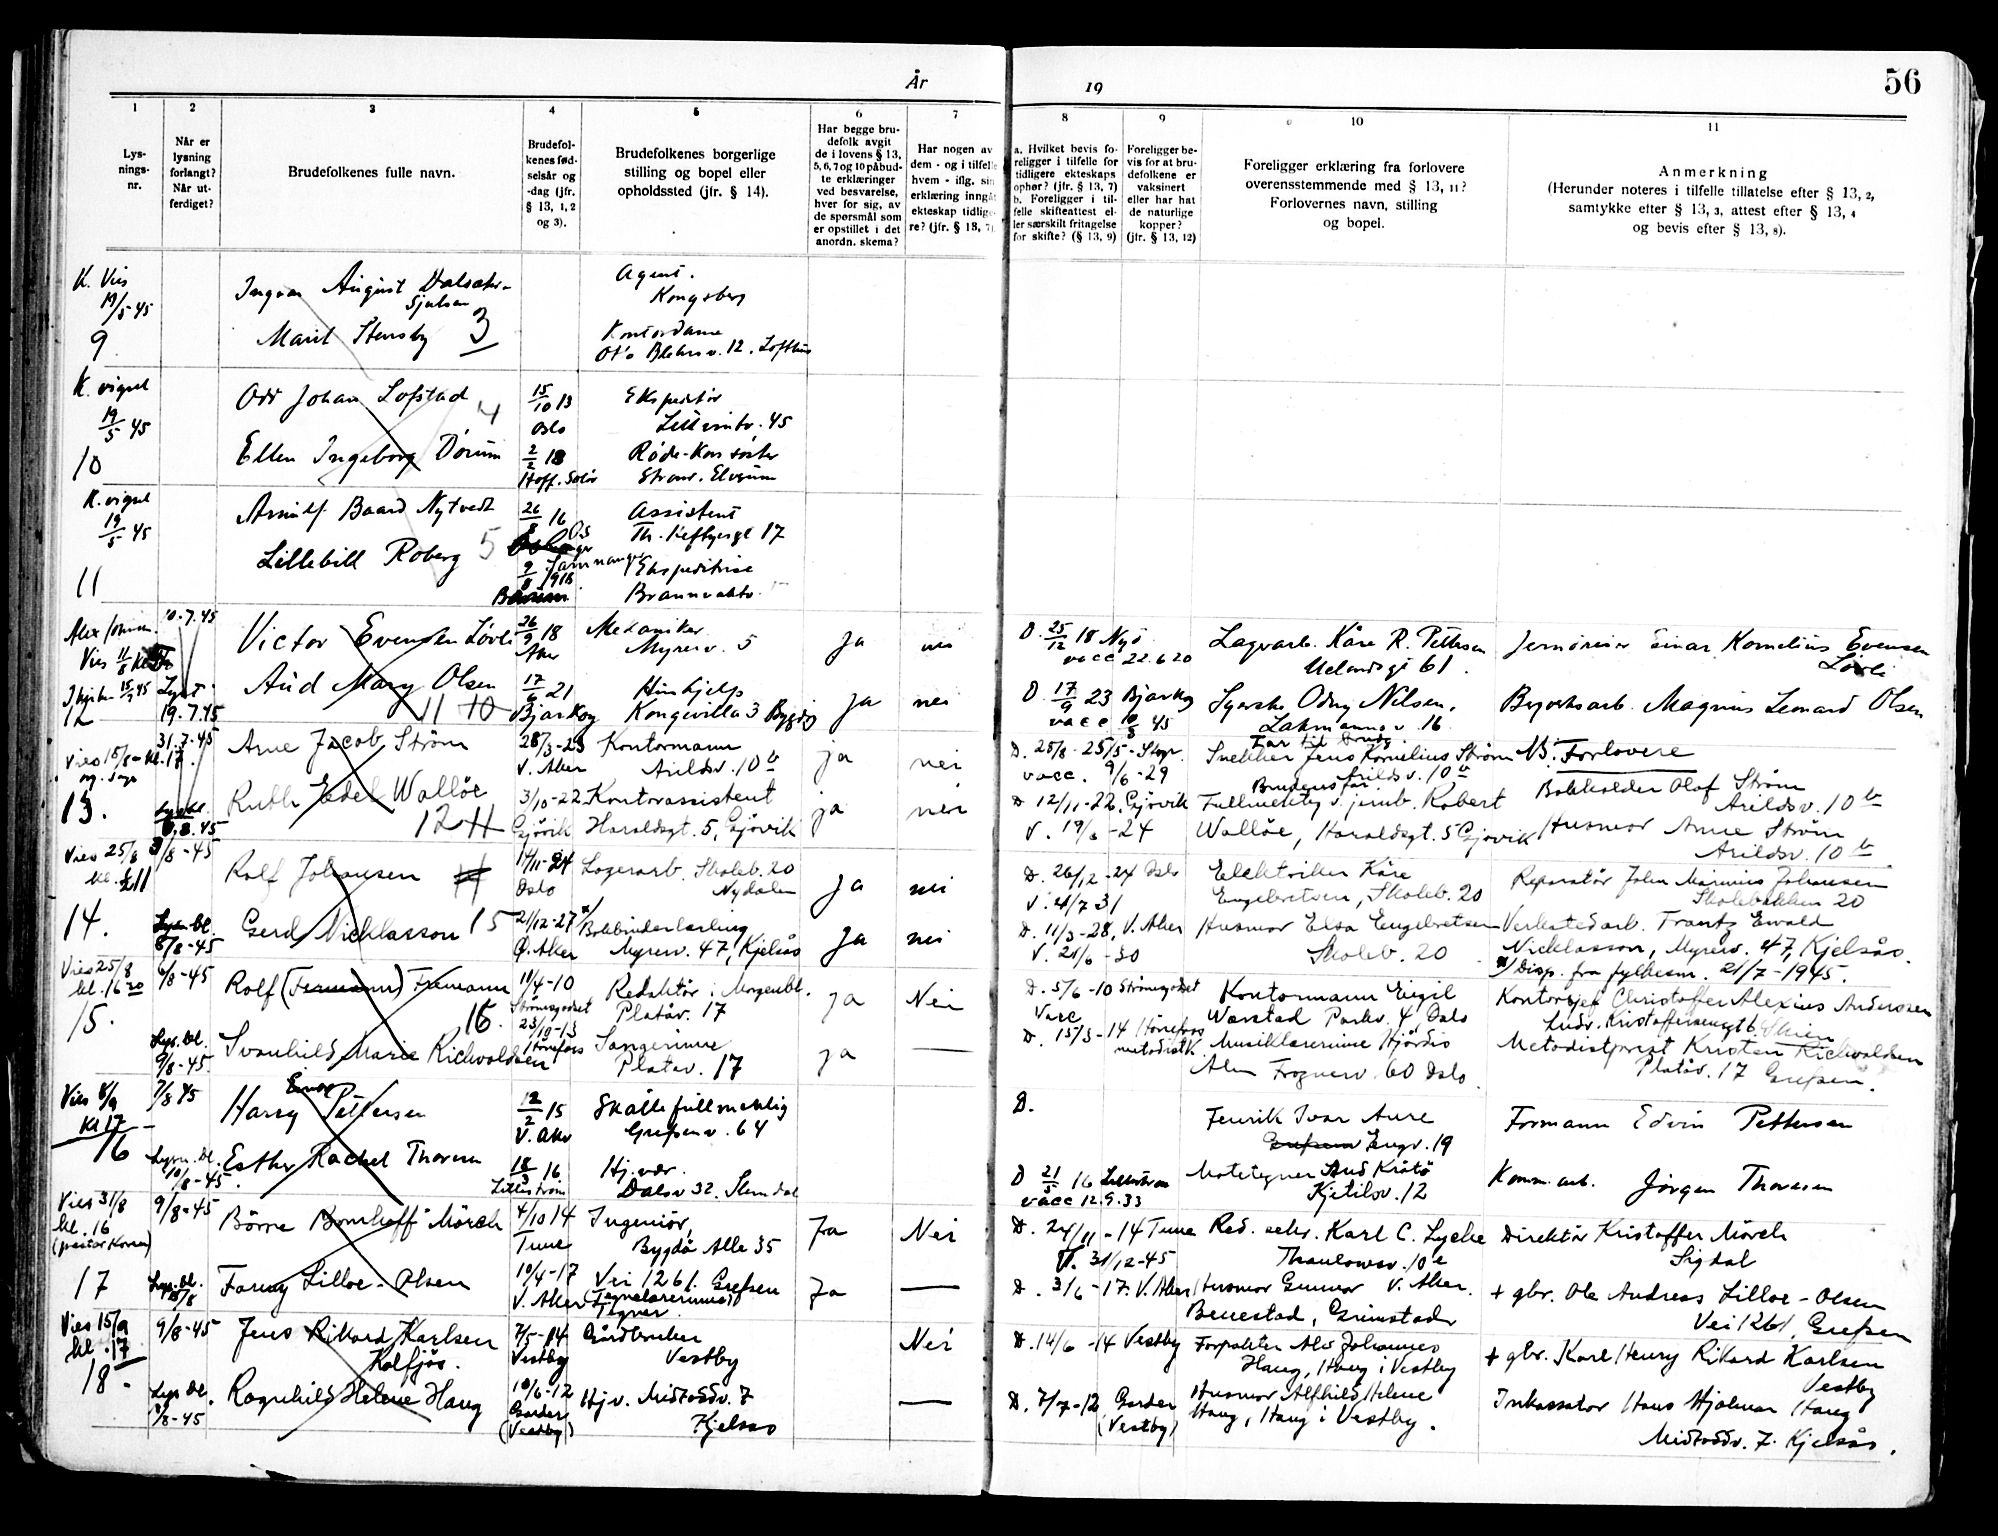 År 19
56
1
Lys-
nings-
nr.
2
Når er
lysning
forlangt?
Når ut-
ferdiget?
3
Brudefolkenes fulle navn.
4
Brudefol-
kenes fød-
selsår og
-dag (jfr.
§ 13, 1, 2
og 3).
5
Brudefolkenes borgerlige
stilling og bopel eller
opholdssted (jfr. § 14).
6
Har begge bru-
defolk avgit
de i lovens § 13,
5, 6, 7 og 10 påbud-
te erklæringer
ved besvarelse,
hver for sig, av
de spørsmål som
er opstillet i det
anordn. skema?
7
Har nogen av
dem - og i tilfelle
hvem - iflg. sin
erklæring inngåt
ekteskap tidlige-
re? (jfr. § 18, 7)
8
a. Hvilket bevis fo-
religger i tilfelle for
tidligere ekteskaps
ophør? (jfr. § 13, 7)
b. Foreligger i til-
felle skifteattest el-
ler særskilt fritagelse
for skifte? (§ 13, 9)
9
Foreligger be-
vis for at bru-
defolkene er
vaksinert
eller har hat
de naturlige
kopper?
(jfr. § 13, 12)
10
Foreligger erklæring fra forlovere
overensstemmende med § 13, 11?
Forlovernes navn, stilling
og bopel.
11
Anmerkning
(Herunder noteres i tilfelle tillatelse efter § 13, 2,
samtykke efter § 13, 3, attest efter § 13, 4
og bevis efter § 13, 8).
K. Vies
19/5 45
9
Ingvar August
Marit Stensby 3
Agent.
Kongsberg
Kontordame
K. vigsel
19/5 45
10
Odd Johan Lofstad 4
Ellen Ingeborg Dørum
15/10 13
Oslo
2/2 18
Ekspeditør
45
Røde-Kors søster
K. vigsel
19/5 45
11
Arnulf Baard Nytvedt
Lillebill Roberg 5
26/8 16
9/8 1918
Assistent
17
Ekspeditrise
12
10.7.45
19.7.45
Victor Evensen Løvli
Aud Mary Olsen
11 10
26/9 18
Aker
17/6 21
Bjarkøy
Mekaniker
Myrerv. 5
Hushjelp
Kongevilla 3 Bygdøy
Ja nei
Ja nei
D. 25/12 18
vacc 22.6 20
D. 17/9 23 Bjarkøy
vacc 45
Lagerarb. Kåre R. Pettersen
Uelandsgt 61.
Syerske Odny Nilsen,
16
Einar Kornelius Evensen
Løvli
Magnus Leonard Olsen
13.
31.7.45
8.8.45
Arne Jacob Strøm
Ruth Wallöe
12
28/3-23
V. Aker
3/10-22
Gjövik
Kontormann
Arildsv. 10 b
Kontorassistent
Haraldsgt. 5, Gjövik
ja nei
ja nei
vacc. 9/6-29
D 12/11-22, Gjövik
V. 19/6-24
Snekker Jens Kornelius Strøm
Arildsv. 10 b
Brudens far
Robert
Wallöe, Haraldsgt. 5 Gjövik
NB. Forlovere
Bokholder Olaf Strøm
Arildsv. 10 b
Husmor Anne Strøm
Arildsv. 10 b
Vies 25/8
14.
8/8-45
Rolf Johansen
Gerd Nicklasson 15
14/11-24
Oslo
21/12-27
Ø. Aker
Lagerarb. Skoleb. 20
Nydalen
Bokbinderlærling
Myrerv. 47, Kjelsås
Ja nei
Ja nei
D. 26/12-24 Oslo
V. 21/7 31
D. 11/3-28, V. Aker
V. 21/6-30
Elektriker Kåre
Engebretsen, Skoleb. 20
Husmor Elsa Engebretsen
Skoleb. 20
Reparatør John Marinius Johansen
Skolebakken 20
Verkstedarb. Frantz Ewald
Nicklasson, Myrerv. 47, Kjelsås.
x) Disp. fra fylkesm. 21/7-1945.
Vies 25/8
kl. 16 20
15.
6/8-45
Lys. bl.
9/8-45
Rolf (Fermann) Fremann
16
Svanhild Marie Richvoldsen
11/4-10
Strømsgodset
23/10-13
Hønefoss
Redaktør i Morgenbl.
Platåv. 17
Sangerinne
Platåv. 17
ja Nei
ja —
D. 5/6-10 Strømsgodset
Vacc
D. 15/3-14 Hønefoss
metodistk.
Kontormann Eigil
Wærstad Parkv. 4 Oslo
Musiklærerinne Hjørdis
Frognerv. 60 Oslo
Kontorsjef Christoffer Alexius Anderssen
Skien
Metodistprest Kristen Richvoldsen
Platåv. 17 Grefsen.
Vies 8/9
kl 17
16
7/8 45
10/8-45.
Harry Einar Pettersen
Esther Rachel Thoresen
12/2 15
V. Aker
18/3 16
Lillestrøm
Skattefullmektig
Grefsenv. 64
Hj. vær.
Dalsv 32. Slemdal
D.
D 21/5 16 Lillestrøm
vacc 12.9.33
Henrik Ivar Aure
Engv. 19
Motetegner
Kjetilsv. 12
Formann Edvin Pettersen
Komm. arb. Jørgen Thoresen
Vies 31/8
kl. 16
(pastor Koren)
17
9/8-45
Børre Bomhoff Mørch
Fanny Lilloe-Olsen
4/10 14
Tune
10/4-17
V. Aker
Ingeniør,
Bygdø Alle 35
Vei 1261. Grefsen
(Tegnelærerinne)
Tegner
Ja Nei
Ja —
D. 24/11-14 Tune
V. 31/12-45
D. 3/6-17. V. Aker
Red. sekr. Karl C. Lyche
Thaulowsv. 10 e
Husmor Gunvor V. Aker.
Benestad, Grimstad
Direktør Kristoffer Mørch
Sigdal
+ gbr. Ole Andreas Lilloe-Olsen
Vei 1261, Grefsen
Vies 15/9
kl. 17
18
9/8-45
Jens Rikard Karlsen
Kolfjøs.
Ragnhild Helene Haug
7/5-14
Vestby
10/6-12
Garder
(Vestby)
Gårdbruker
Vestby
Hjv. Midtoddv. 7
Kjelsås
Nei
—
D. 14/6-14 Vestby
D. 7/7-12 Garder
(Vestby)
Forpakter Alv Johannes
Haug, Haug i Vestby
Husmor Alfhild Helene
Haug, Haug i Vestby.
+ gbr. Karl Henry Rikard Karlsen
Vestby
Inkassator Hans Hjalmar Haug
Midtoddv. 7. Kjelsås.